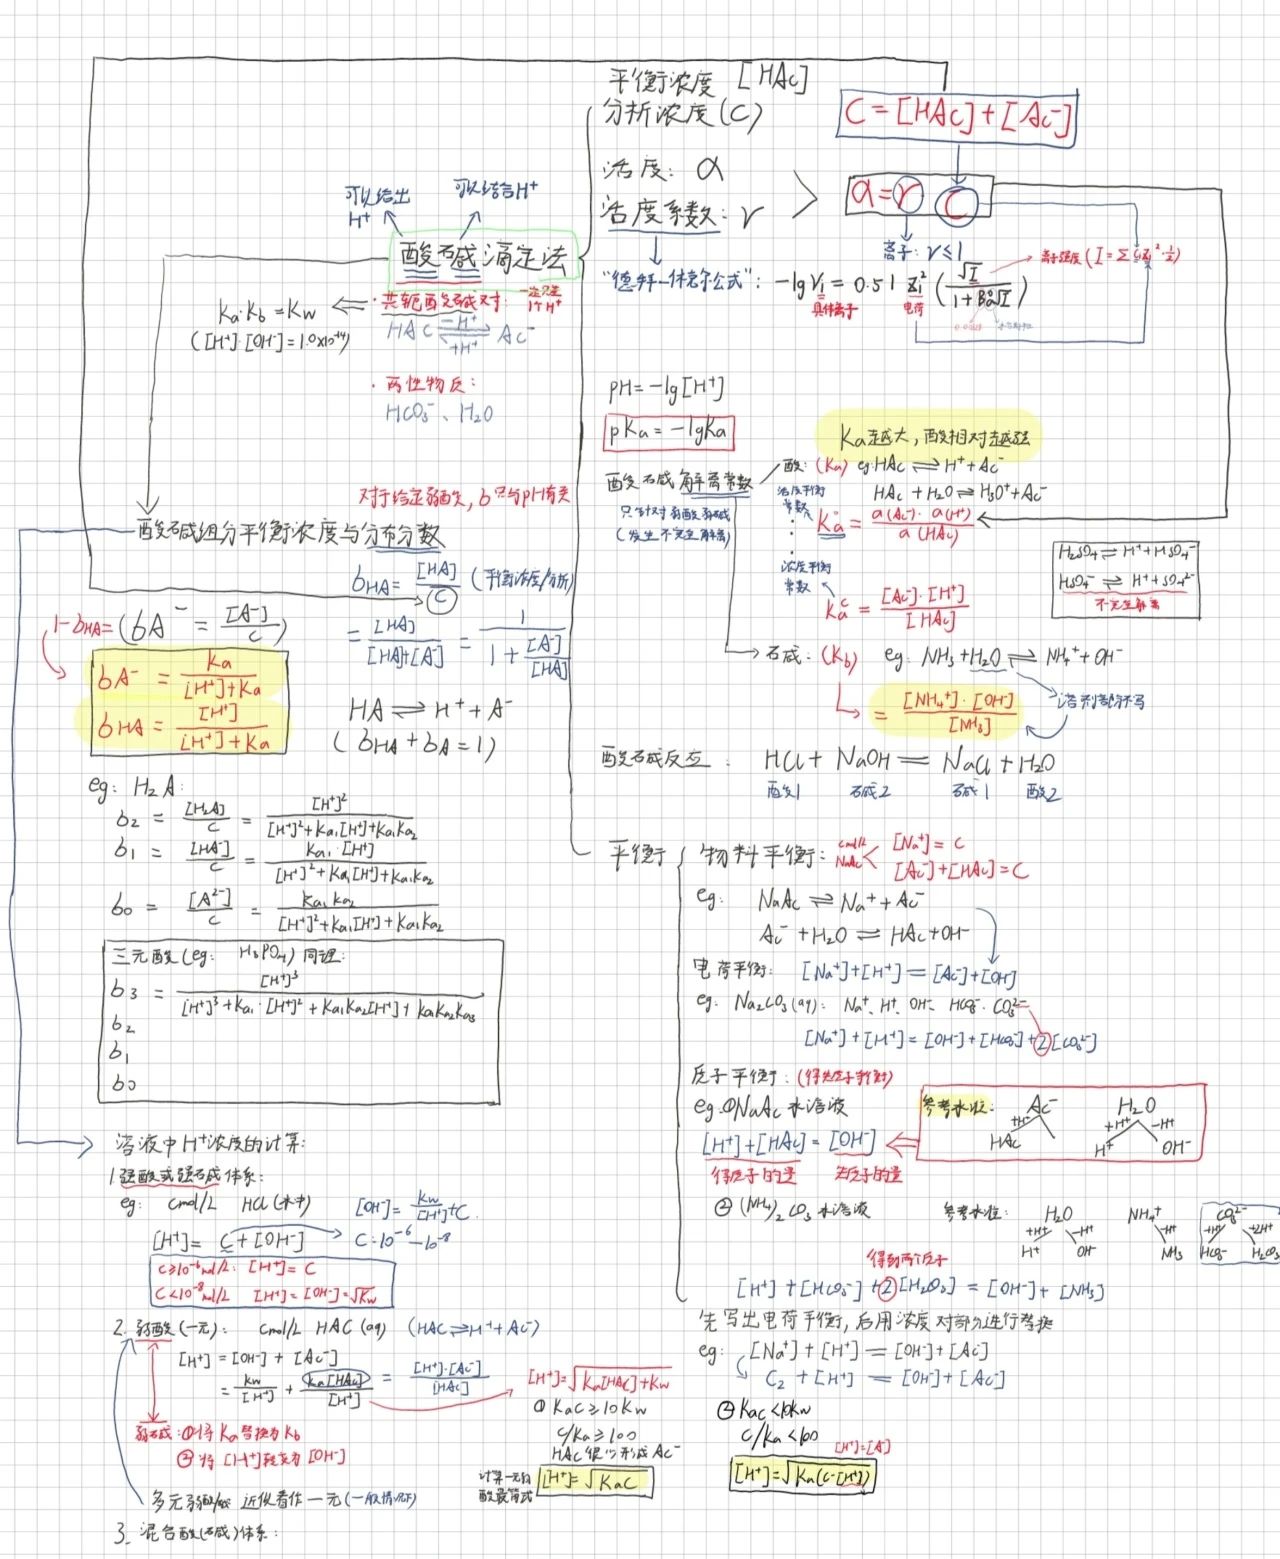 平衡浓度 [HAc]
分析浓度(C)
C = [HAc] + [Ac⁻]
活度: α
活度系数: γ
α = γ C
离子: γ ≤ 1
离子强度 (I = Σ CᵢZᵢ² · ½)
可以给出 H⁺
可以结合H⁺
酸碱滴定法
"德拜—休克尔公式": -lgγᵢ = 0.51 Zᵢ² (√I / 1 + Bå√I)
具体离子
电荷
Ka·Kb = Kw
([H⁺]·[OH⁻] = 1.0×10⁻¹⁴)
· 共轭酸碱对: 一定只差1个H⁺
HAc ⇌ Ac⁻
-H⁺
+H⁺
· 两性物质:
HCO₃⁻、H₂O
pH = -lg[H⁺]
pKa = -lgKa
Ka越大,酸相对越强
酸碱解离常数
只针对弱酸弱碱
(发生不完全解离)
酸: (Ka) eg: HAc ⇌ H⁺ + Ac⁻
HAc + H₂O ⇌ H₃O⁺ + Ac⁻
活度平衡常数
Ka° = a(Ac⁻)·a(H⁺) / a(HAc)
浓度平衡常数
Kaᶜ = [Ac⁻]·[H⁺] / [HAc]
H₂SO₄ ⇌ H⁺ + HSO₄⁻
HSO₄⁻ ⇌ H⁺ + SO₄²⁻
不完全解离
碱: (Kb) eg: NH₃ + H₂O ⇌ NH₄⁺ + OH⁻
= [NH₄⁺]·[OH⁻] / [NH₃]
溶剂部分不写
酸碱反应: HCl + NaOH = NaCl + H₂O
酸1 碱2 碱1 酸2
对于给定弱酸, δ只与pH有关
酸碱组分平衡浓度与分布分数
δHA = [HA] / C (平衡浓度/分析)
= [HA] / [HA]+[A⁻] = 1 / 1 + [A⁻]/[HA]
1-δHA = (δA⁻ = [A⁻] / C)
δA⁻ = Ka / [H⁺]+Ka
δHA = [H⁺] / [H⁺]+Ka
HA ⇌ H⁺ + A⁻
(δHA + δA = 1)
eg: H₂A:
δ₂ = [H₂A] / C = [H⁺]² / [H⁺]²+Ka₁[H⁺]+Ka₁Ka₂
δ₁ = [HA⁻] / C = Ka₁·[H⁺] / [H⁺]²+Ka₁[H⁺]+Ka₁Ka₂
δ₀ = [A²⁻] / C = Ka₁Ka₂ / [H⁺]²+Ka₁[H⁺]+Ka₁Ka₂
三元酸(eg: H₃PO₄)同理:
δ₃ = [H⁺]³ / [H⁺]³+Ka₁·[H⁺]²+Ka₁Ka₂[H⁺]+Ka₁Ka₂Ka₃
δ₂
δ₁
δ₀
平衡
物料平衡: cmol/L NaAc < [Na⁺] = C
[Ac⁻]+[HAc] = C
eg: NaAc ⇌ Na⁺ + Ac⁻
Ac⁻ + H₂O ⇌ HAc + OH⁻
电荷平衡: [Na⁺]+[H⁺] = [Ac⁻]+[OH⁻]
eg: Na₂CO₃(aq): Na⁺、H⁺、OH⁻、HCO₃⁻、CO₃²⁻
[Na⁺]+[H⁺] = [OH⁻]+[HCO₃⁻]+2[CO₃²⁻]
质子平衡: (得失质子平衡)
eg: ①NaAc 水溶液
[H⁺]+[HAc] = [OH⁻]
得质子的量 失质子的量
参考水准: Ac⁻ +H⁺ HAc
H₂O +H⁺ -H⁺ H⁺ OH⁻
② (NH₄)₂CO₃ 水溶液
参考水准: H₂O +H⁺ -H⁺ H⁺ OH⁻
NH₄⁺ -H⁺ NH₃
CO₃²⁻ +H⁺ +2H⁺ HCO₃⁻ H₂CO₃
得到两个质子
[H⁺]+[HCO₃⁻]+2[H₂CO₃] = [OH⁻]+[NH₃]
先写出电荷平衡,后用浓度对部分进行替换
eg: [Na⁺]+[H⁺] = [OH⁻]+[Ac⁻]
C₂ + [H⁺] = [OH⁻]+[Ac⁻]
溶液中H⁺浓度的计算:
1.强酸或强碱体系:
eg: cmol/L HCl (水中)
[OH⁻] = Kw / [H⁺]+C
[H⁺] = C + [OH⁻]
C: 10⁻⁶—10⁻⁸
C≥10⁻⁶mol/L: [H⁺] = C
C<10⁻⁸mol/L [H⁺] = [OH⁻] = √Kw
2. 弱酸(一元): cmol/L HAC (aq) (HAC ⇌ H⁺ + AC⁻)
[H⁺] = [OH⁻] + [Ac⁻]
= Kw / [H⁺] + Ka[HAc] / [H⁺] = [H⁺]·[Ac⁻] / [HAc]
弱碱: ①将Ka替换为Kb
②将[H⁺]改为[OH⁻]
[H⁺] = √Ka[HAc]+Kw
① KaC ≥ 10Kw
C/Ka ≥ 100
HAc很少形成Ac⁻
计算一元弱酸最简式
[H⁺] = √KaC
② Kac < 10Kw
C/Ka < 100
[H⁺]=[A⁻]
[H⁺] = √Ka(c-[H⁺])
多元弱酸/碱 近似看作一元(一般情况下)
3. 混合酸(碱)体系: